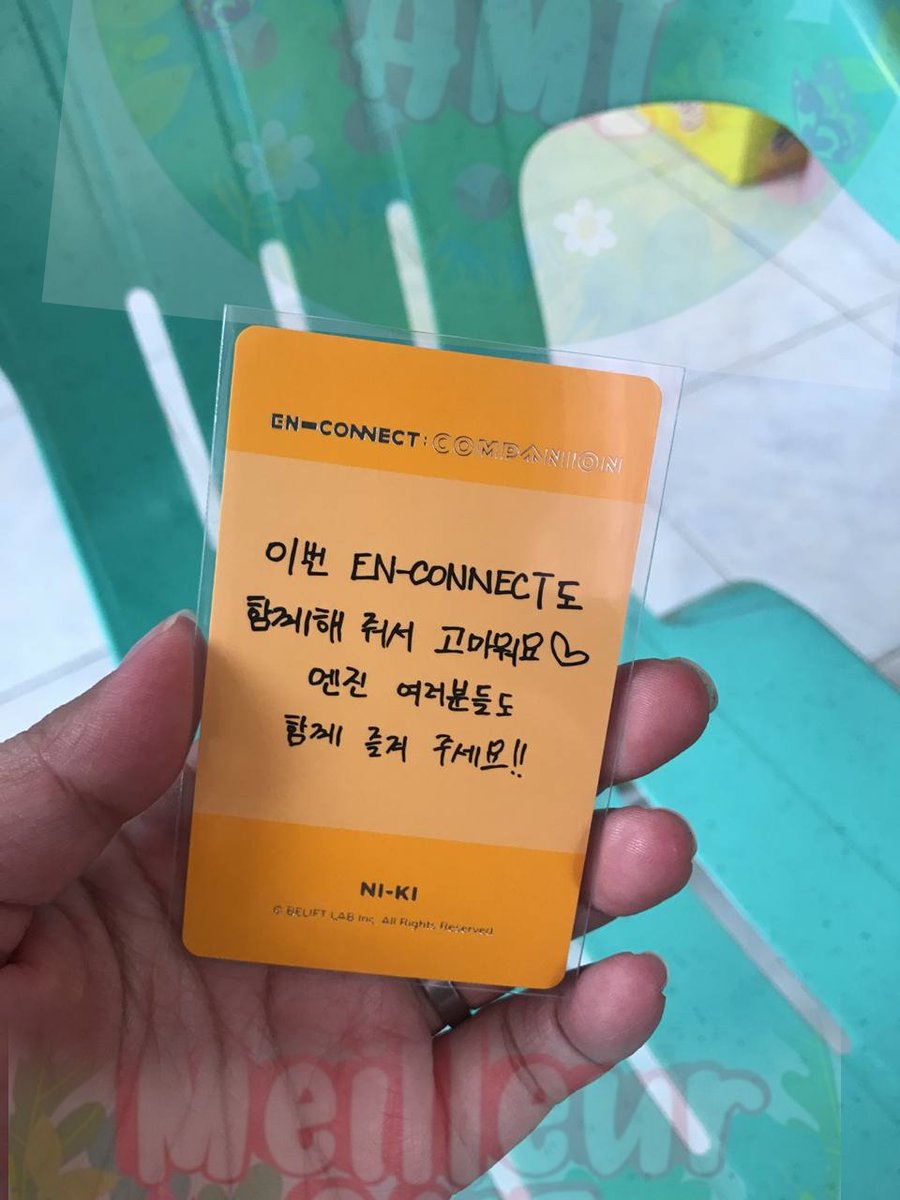 AMI
EN-CONNECT: COMPANION
이번 EN-CONNECT도
함께해 줘서 고마워요♡
엔진 여러분들도
함께 즐겨 주세요!!
NI-KI
© BELIFT LAB Inc. All Rights Reserved
Meilleur